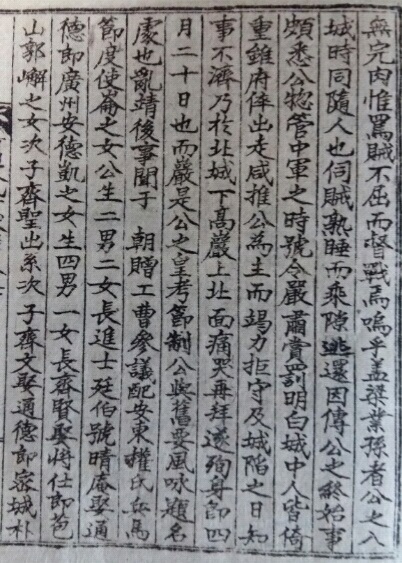 無完肉惟罵賊不屈而督戰焉嗚乎盖梁業孫者公之入
城時同隨人也伺賊熟睡而乘隙逃還因傳公之終始事
頗悉公摠管中軍之時號令嚴肅賞罰明白城中人皆倚
重雖府倅出走咸推公為主而竭力拒守及城陷之日知
事不濟乃於北城下高巖上北面痛哭再拜遂殉身即四
月二十日也而巖是公之皇考節制公與舊要風咏題名
處也亂靖後事聞于 朝贈工曹參議配安東權氏兵馬
節度使崙之女公生二男二女長進士廷伯號晴庵娶通
德郎廣州安德凱之女生四男一女長齊賢娶將仕郎苞
山郭嶰之女次子齊聖出系次子齊文娶通德郎密城朴